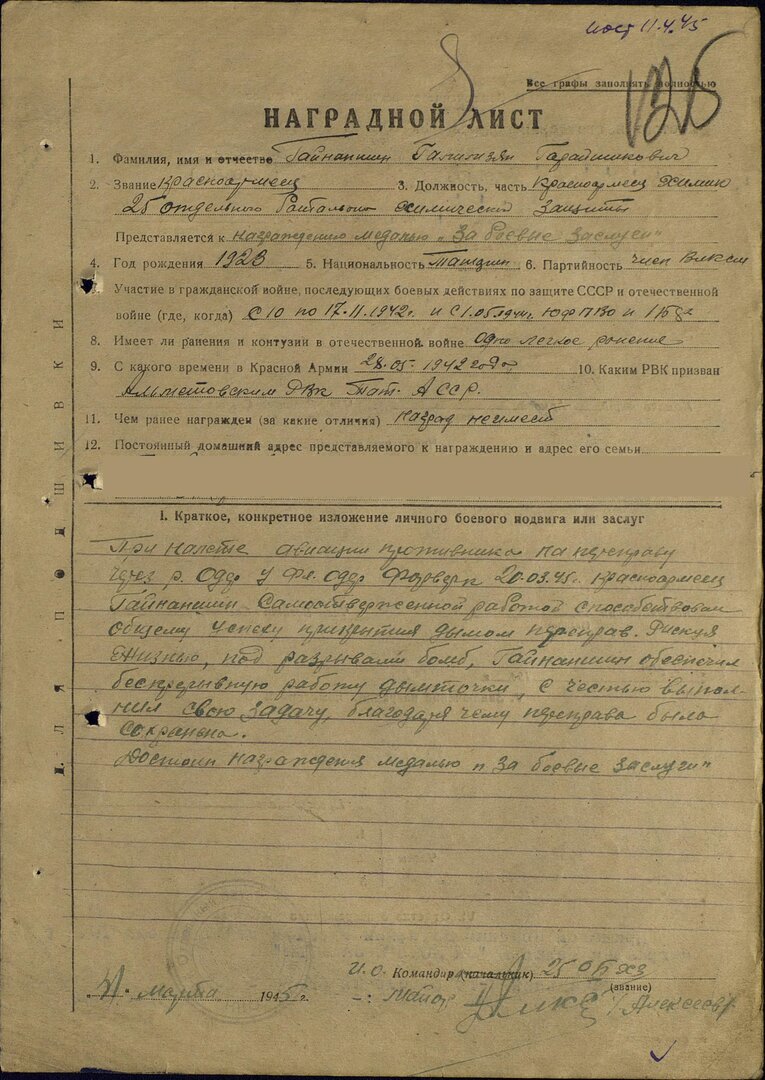 11.4.45
Все графы заполнять полностью
НАГРАДНОЙ ЛИСТ
1. Фамилия, имя и отчество Гайнаншин
2. Звание Красноармеец 3. Должность, часть Красноармеец Химик
25 отдельного Батальона химической Защиты
Представляется к награждению медалью „За боевые заслуги"
4. Год рождения 1923 5. Национальность 6. Партийность член ВЛКСМ
Участие в гражданской войне, последующих боевых действиях по защите СССР и отечественной
войне (где, когда) С 10 по 17.11.1942г. и с 1.05.
8. Имеет ли ранения и контузии в отечественной войне Одно легкое ранение
9. С какого времени в Красной Армии 28.05.1942 года 10. Каким РВК призван
Альметовским РВК Тат. АССР.
11. Чем ранее награжден (за какие отличия) Наград не имеет
12. Постоянный домашний адрес представляемого к награждению и адрес его семьи
ДЛЯ ПОДШИВКИ
I. Краткое, конкретное изложение личного боевого подвига или заслуг
При налете авиации противника на переправу
через р. Одер у Фл. Одер Форверк 20.03.45г. красноармеец
Гайнаншин Самоотверженной работой способствовал
общему успеху прикрытия дымом переправ. Рискуя
Жизнью, под разрывами бомб, Гайнаншин обеспечил
беспрерывную работу дымточки, с честью выпол-
нил свою задачу, благодаря чему переправа была
сохранена.
Достоин награждения медалью „За боевые заслуги"
И.О. Командир (начальник) 25 ОБХЗ
марта 1945 г. Майор (звание) /Алексеев/